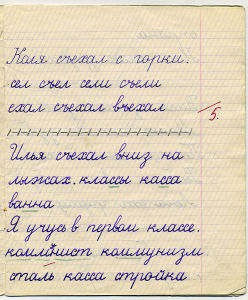 Коля съехал с горки.
сел съел сели съели
ехал съехал въехал
/5.
Илья съехал вниз на
лыжах. классы касса
ванна
Я учусь в первом классе.
коммунист коммунизм
сталь касса стройка